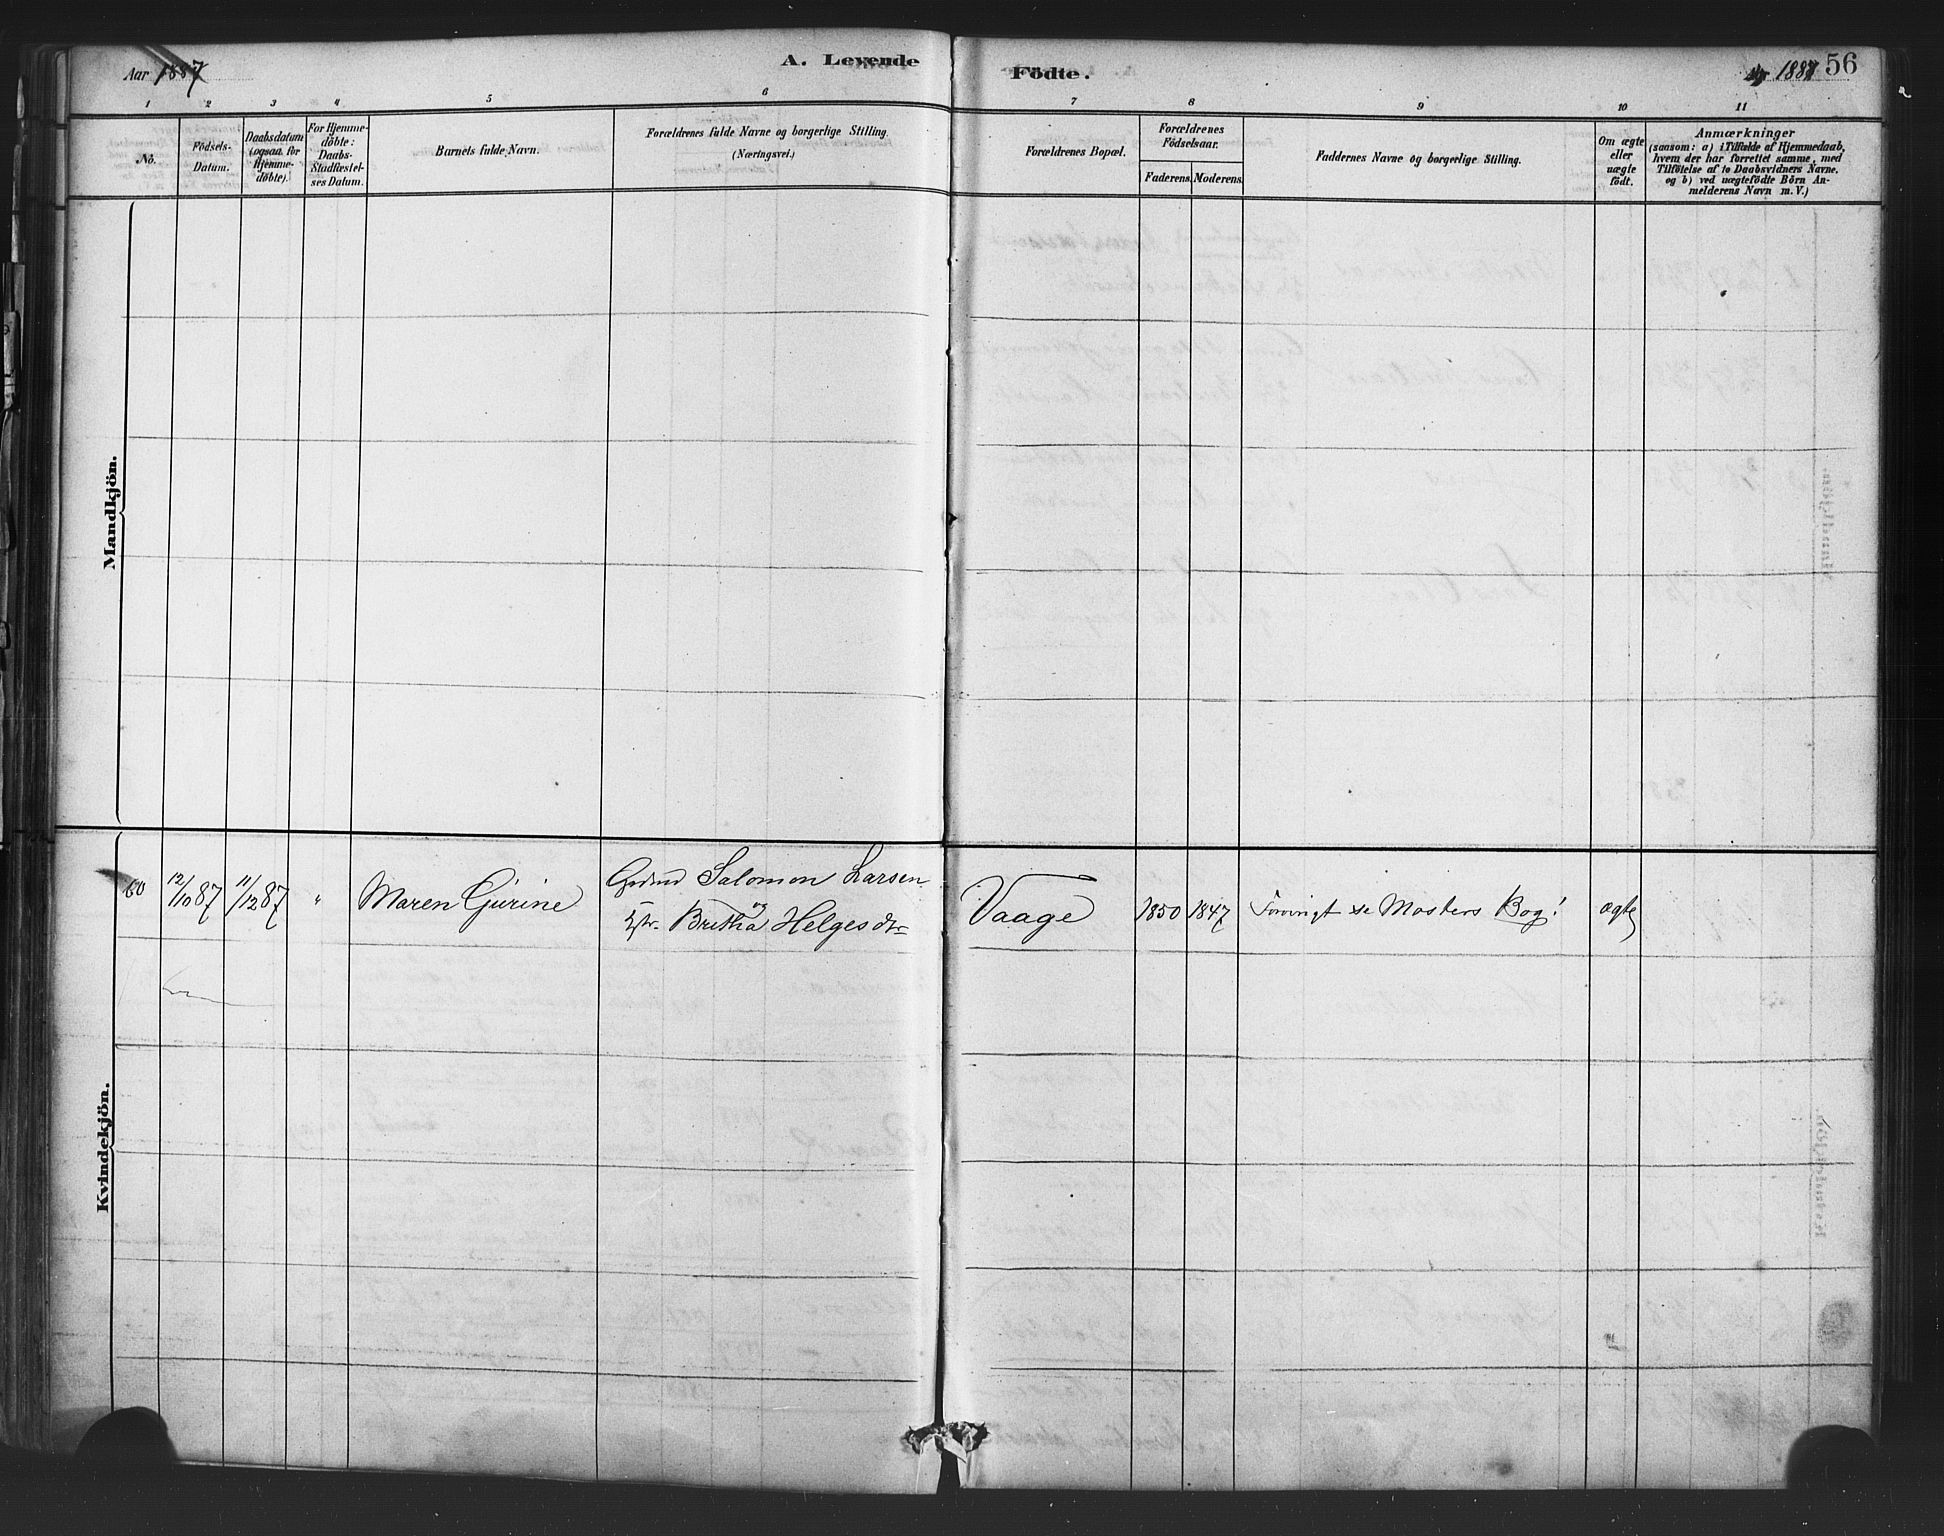 Aar 1887
A. Levende
Födte.
1887
56
1 2 3 4 5 6 7 8 9 10 11
No.
Födsels-
Datum.
Daabsdatum
(ogsaa for
Hjemme-
döbte).
For Hjemme-
döbte:
Daabs-
Stadfæstel-
ses Datum.
Barnets fulde Navn.
Forældrenes fulde Navne og borgerlige Stilling.
(Næringsvei.)
Forældrenes Bopæl.
Forældrenes
Födselsaar.
Faderens. Moderens.
Faddernes Navne og borgerlige Stilling.
Om ægte
eller
uægte
födt.
Anmærkninger
(saasom: a) i Tilfælde af Hjemmedaab,
hvem der har forrettet samme, med
Tilföielse af to Daabsvidners Navne,
og b) ved uægtefödte Börn An-
melderens Navn m. V.)
Mandkjön.
Kvindekjön.
60 12/10 87 11/12 87 " Maren Gurine
Salomon Larsen
og
Britha Helgesdtr
Vaage 1850 1847 Forövrigt se Mosters Bog! ægte